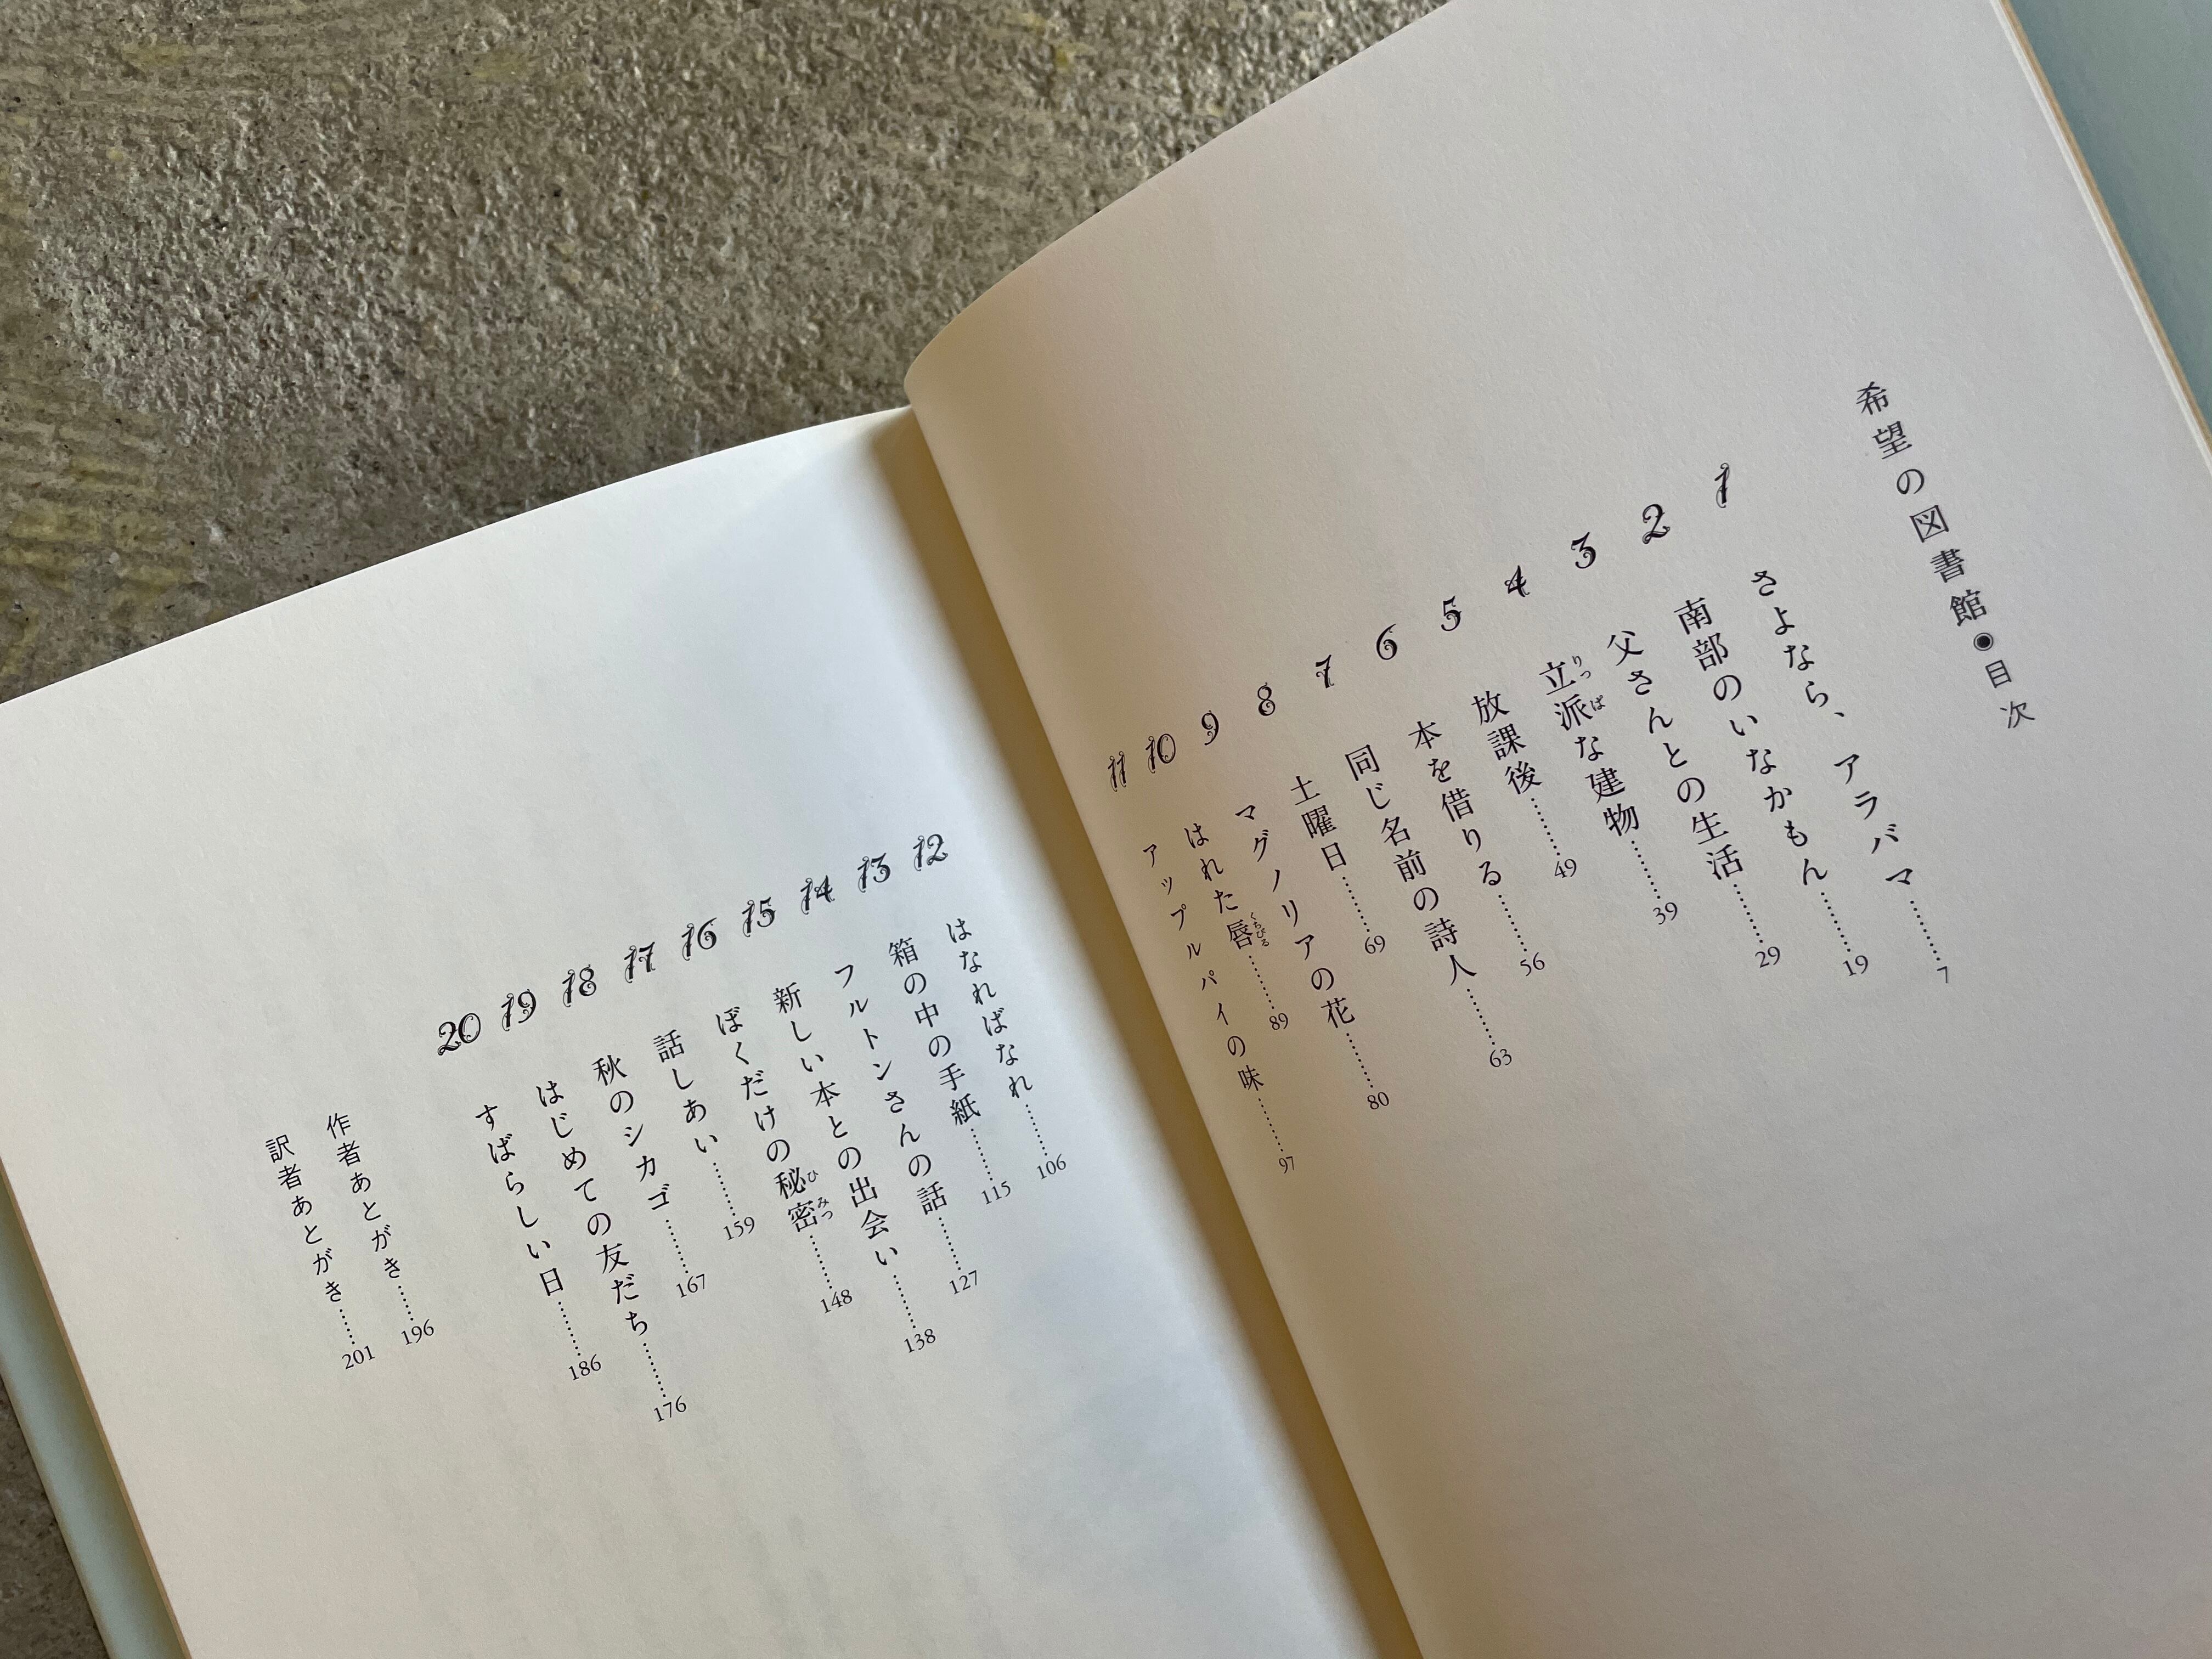 希望の図書館◉目次
1 さよなら、アラバマ……7
2 南部のいなかもん……19
3 父さんとの生活……29
4 立派な建物……39
5 放課後……49
6 本を借りる……56
7 同じ名前の詩人……63
8 土曜日……69
9 マグノリアの花……80
10 はれた唇……89
11 アップルパイの味……97
12 はなればなれ……106
13 箱の中の手紙……115
14 フルトンさんの話……127
15 新しい本との出会い……138
16 ぼくだけの秘密……148
17 話しあい……159
18 秋のシカゴ……167
19 はじめての友だち……176
20 すばらしい日……186
作者あとがき……196
訳者あとがき……201